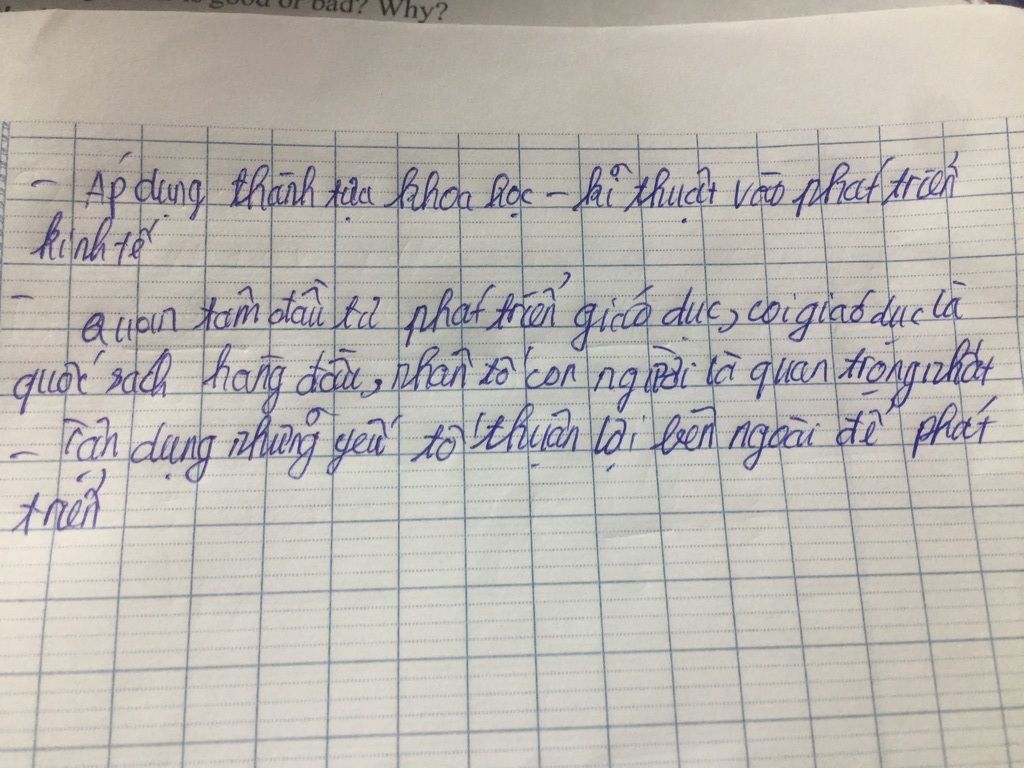 good or bad? Why?
- Áp dụng thành tựu khoa học - kĩ thuật vào phát triển
kinh tế
- quan tâm đầu tư phát triển giáo dục, coi giáo dục là
quốc sách hàng đầu, nhân tố con người là quan trọng nhất
- Tận dụng những yếu tố thuận lợi bên ngoài để phát
triển